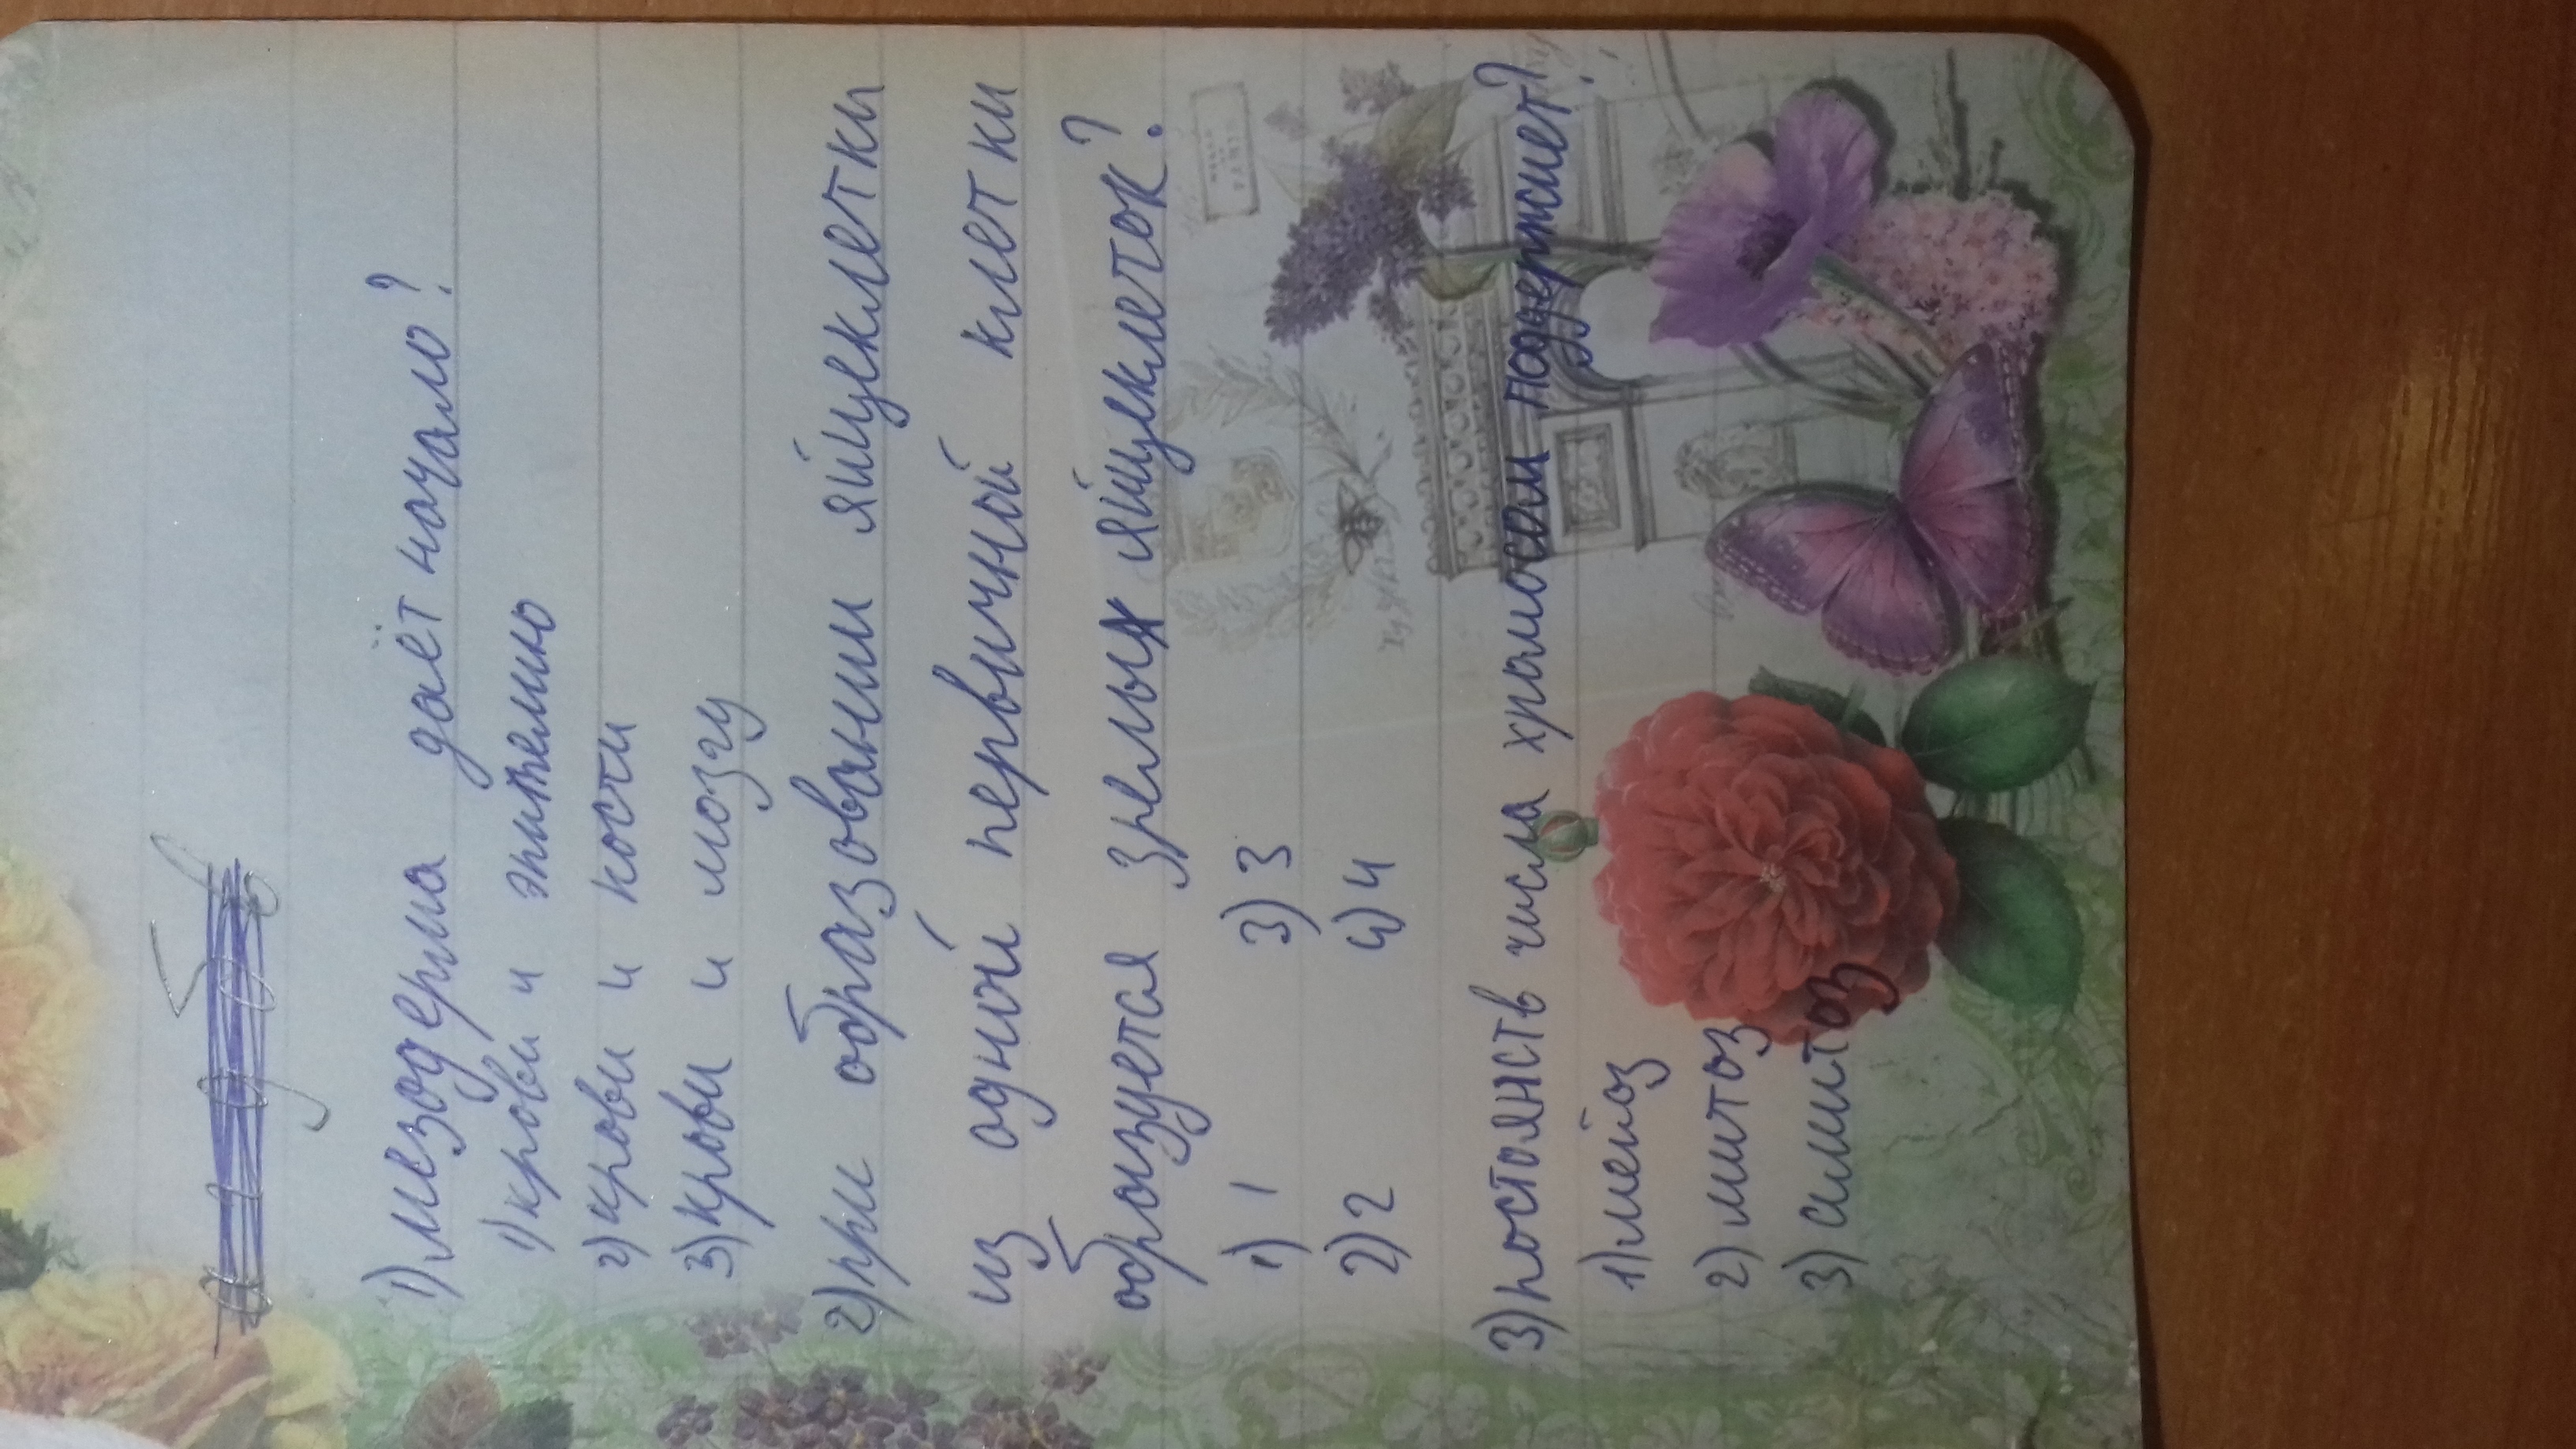 1) мезодерма даёт начало?
1) крови и эпителию
2) крови и кости
3) крови и мозгу
2) при образовании яйцеклетки
из одной первичной клетки
образуется зрелых яйцеклеток?
1) 1 3) 3
2) 2 4) 4
3) постоянств числа хромосом поддержмет?
1) мейоз
2) митоз
3) амитоз